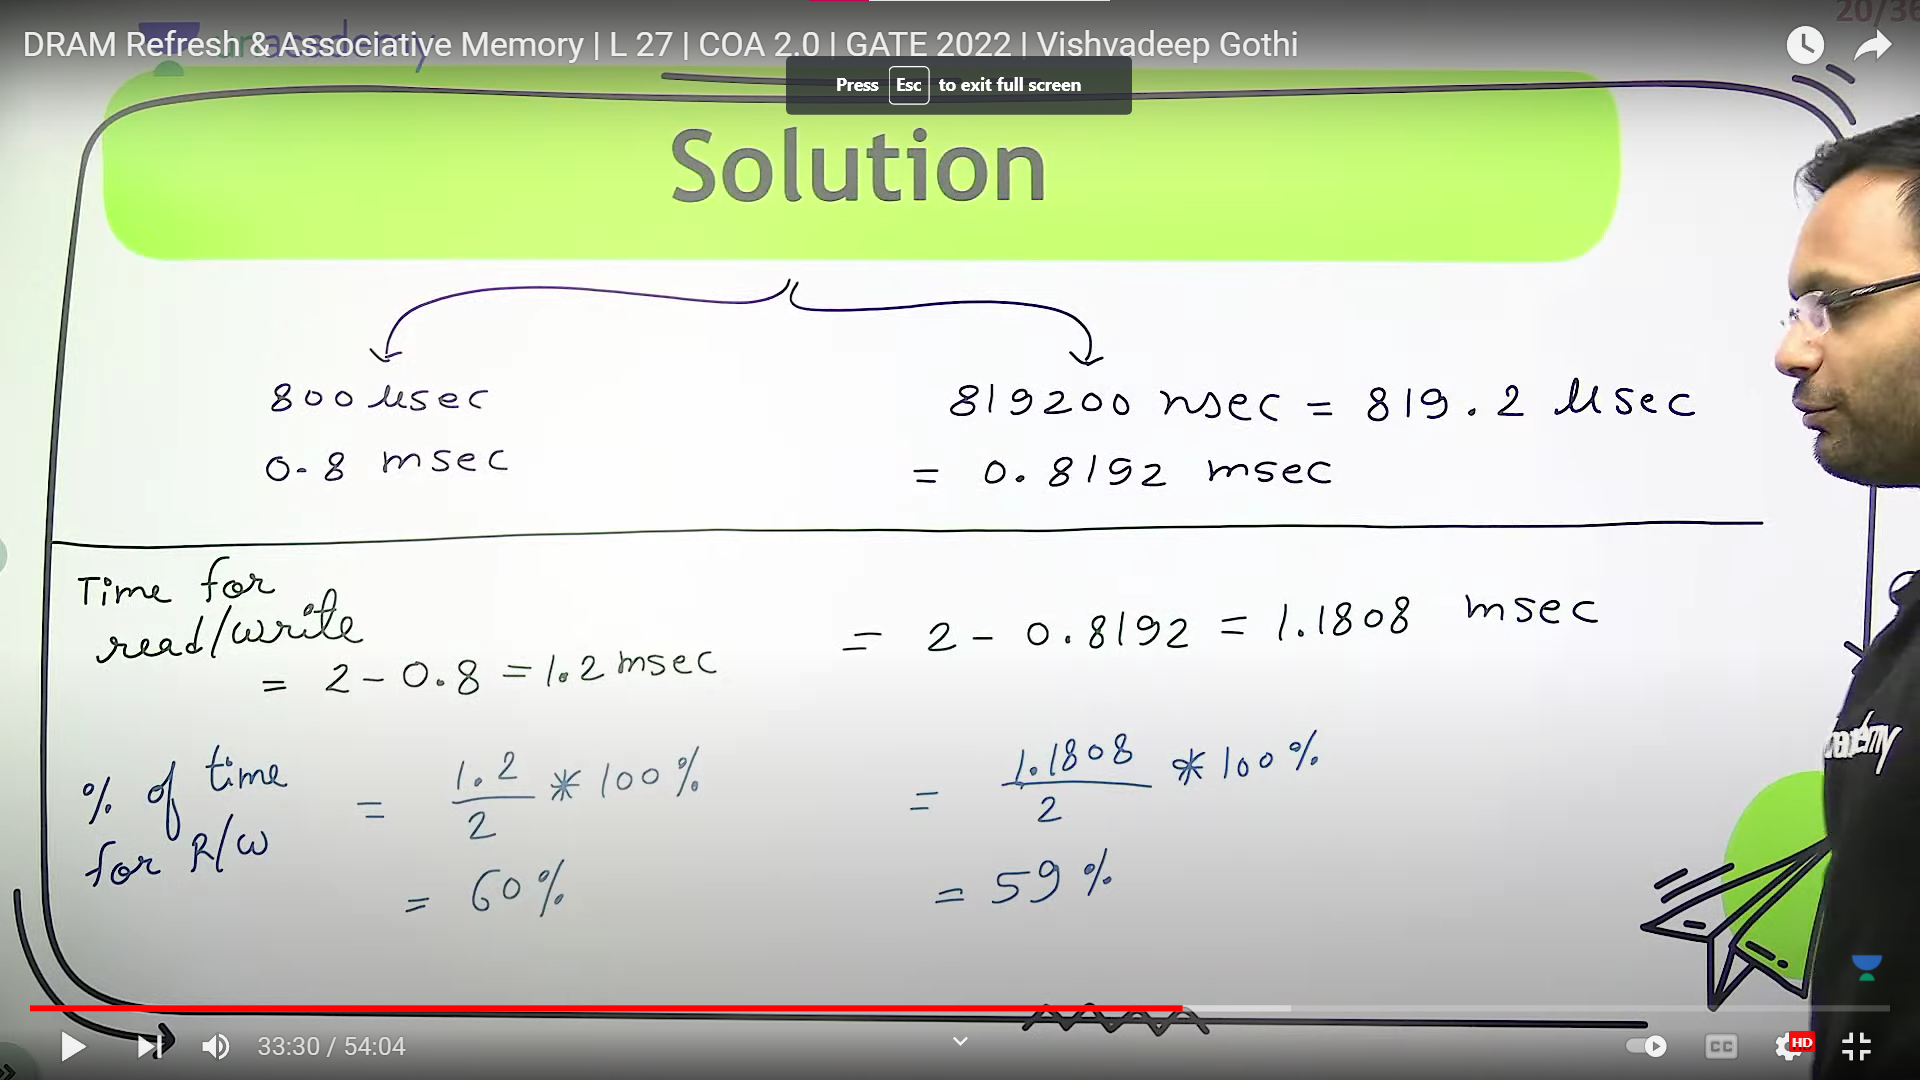 20/36
DRAM Refresh & Associative Memory | L 27 | COA 2.0 | GATE 2022 | Vishvadeep Gothi
Press Esc to exit full screen
Solution
800 μsec
0.8 msec
819200 nsec = 819.2 μsec
= 0.8192 msec
Time for
read/write
= 2 - 0.8 = 1.2 msec
= 2 - 0.8192 = 1.1808 msec
% of time
for R/W
= 1.2/2 * 100%
= 60%
= 1.1808/2 * 100%
= 59%
33:30 / 54:04
CC
HD